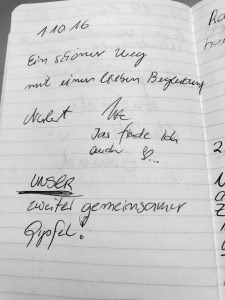 1.10.16
Ein schöner Weg
mit einer lieben Begleitung
Das finde ich
auch
UNSER
zweiter gemeinsamer
Gipfel!